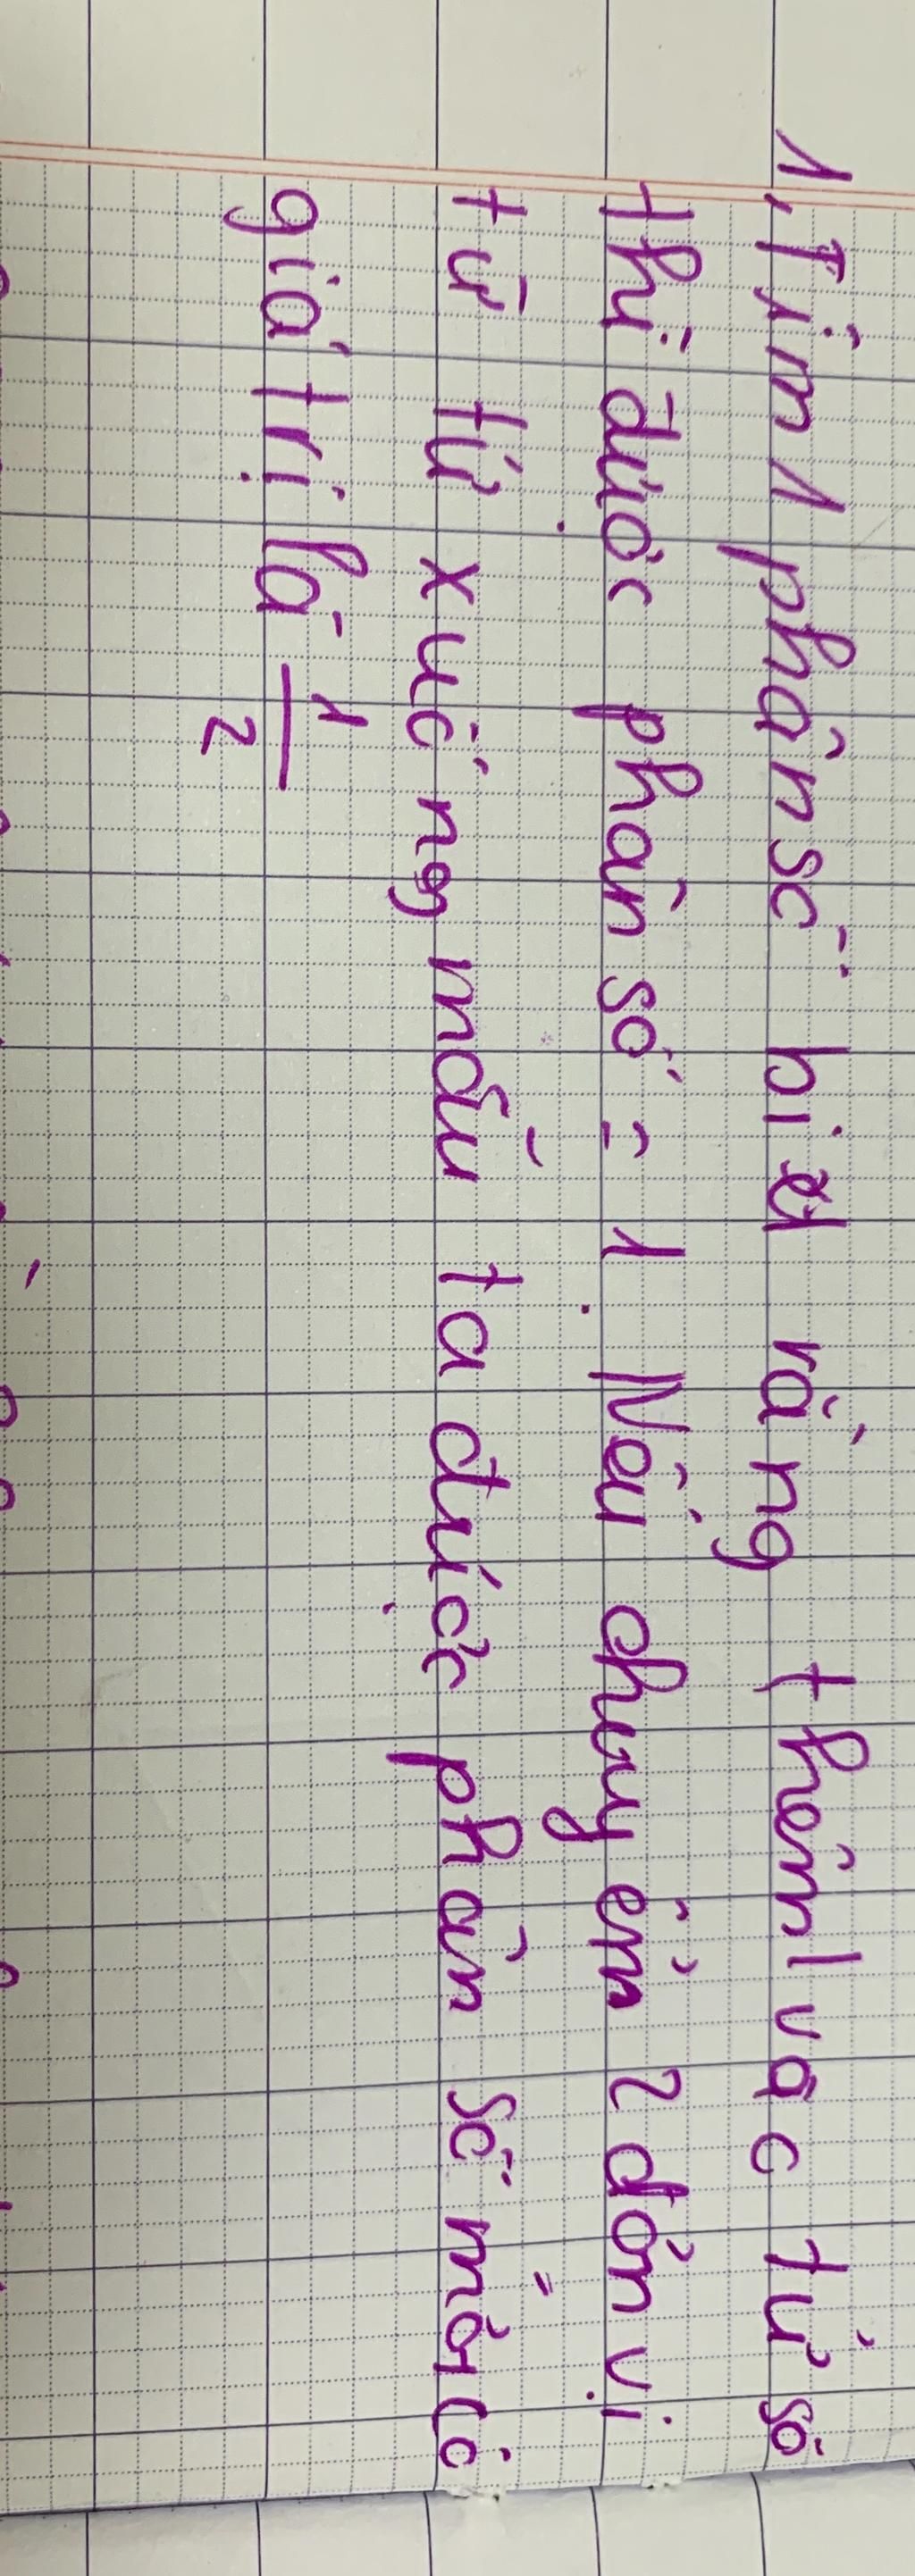 1, Tìm 1 phân số biết rằng thêm 1 vàc tử số
thì được phân số = 1. Nếu chuyển 2 đơn vị
từ tử xuống mẫu ta được phân số mới có
giá trị là 1/2